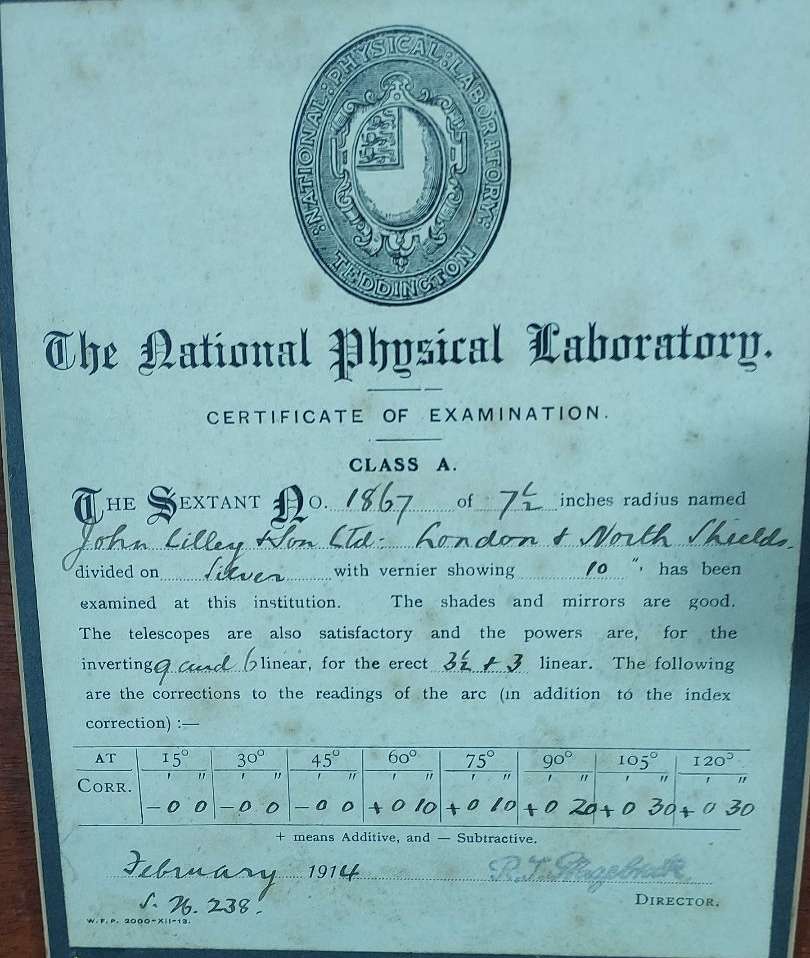 NATIONAL: PHYSICAL: LABORATORY:
TEDDINGTON
The National Physical Laboratory.
CERTIFICATE OF EXAMINATION.
CLASS A.
THE SEXTANT NO. 1867 of 7½ inches radius named
John Lilley & Son Ltd. London & North Shields.
divided on Silver with vernier showing 10", has been
examined at this institution. The shades and mirrors are good.
The telescopes are also satisfactory and the powers are, for the
inverting 9 and 6 linear, for the erect 3½ & 3 linear. The following
are the corrections to the readings of the arc (in addition to the index
correction) :—
AT 15° 30° 45° 60° 75° 90° 105° 120°
' " ' " ' " ' " ' " ' " ' " ' "
CORR. – 0 0 – 0 0 – 0 0 + 0 10 + 0 10 + 0 20 + 0 30 + 0 30
+ means Additive, and — Subtractive.
February 1914
S. N. 238.
DIRECTOR.
W.F.P. 2000-XII-13.